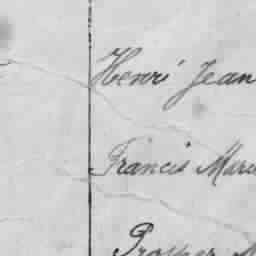 Henri Jean
Francis Marie
Prosper